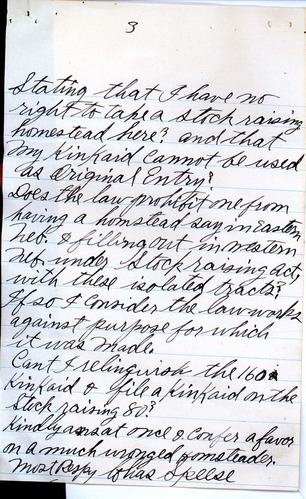 3
Stating that I have no
right to take a stock raising
homestead here? and that
my Kinkaid Cannot be used
as Original Entry?
Does the law prohibit me from
having a homestead say in Eastern
Neb. & filling out in western
Neb. under Stock raising act,
with these isolated tracts?
If so I consider the law works
against purpose for which
it was made.
Cant I relinquish the 160
Kinkaid & file a Kinkaid on the
Stock raising 80?
Kindly ans at once & Confer a favor
on a much wronged homesteader.
Most Respy Chas Speese